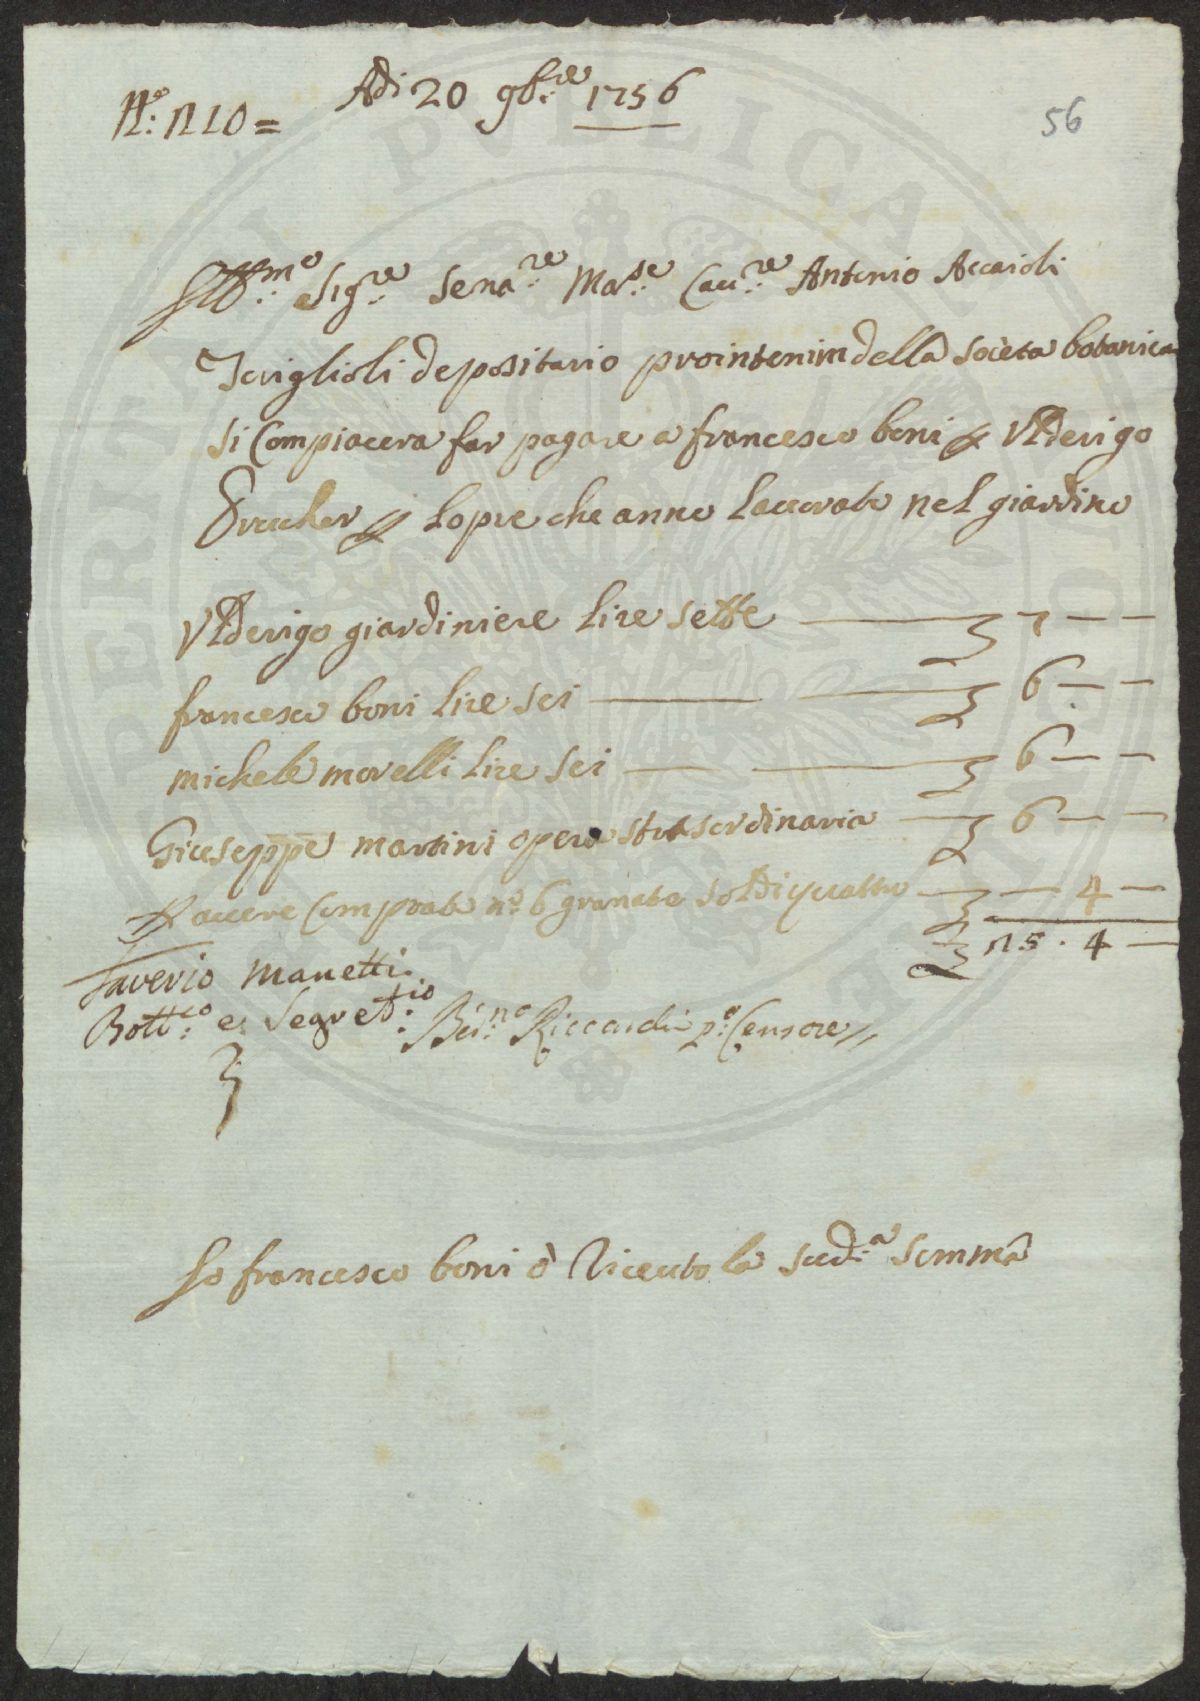 Adi 20 9b:re 1756
N:o 1210 =
56
Ill:mo Sig:re Sena:re Ma:se Cau:re Antonio Accaioli
depositario prointenim della societa botanica
si Compiacera far pagare a francesco boni e Vlderigo
lopre che anno Lauorato nel giardino
Vlderigo giardiniere Lire sette 7 — —
francesco boni lire sei 6 — —
michele morelli lire sei 6 — —
Giuseppe martini opera strasordinaria 6 — —
auere Comprato n:o 6 granate soldi quattro — 4 —
25 . 4 —
Saverio Manetti
Bott:co e Segret:io Ber:no Riccardi p:o Censore
Io francesco boni ò riceuto la sud:a somma
PERITATI PVBLICAE